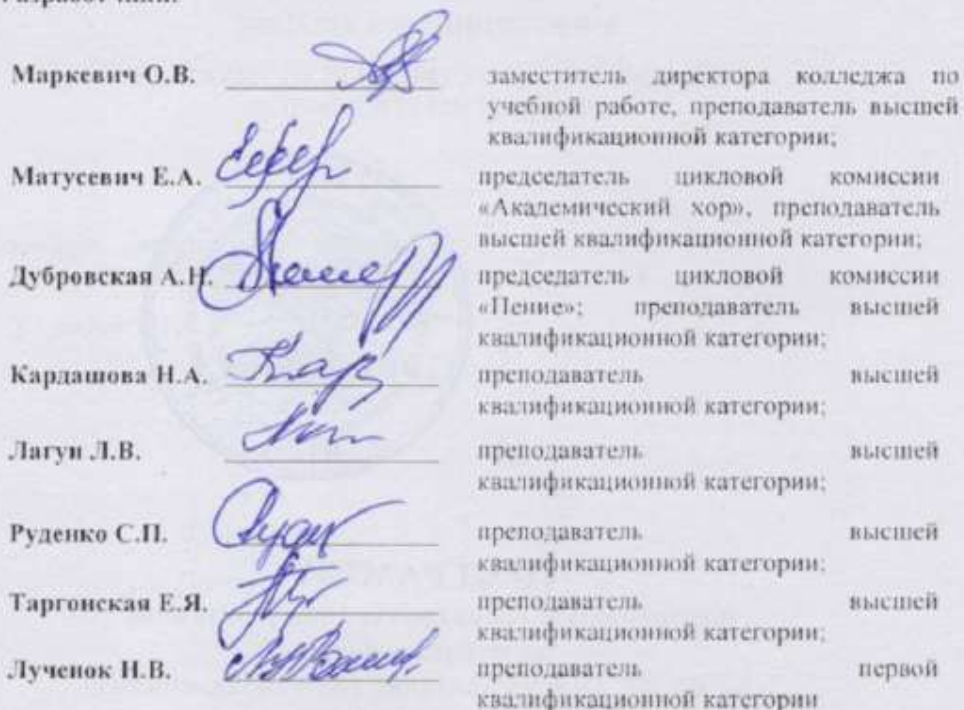 Маркевич О.В. заместитель директора колледжа по
учебной работе, преподаватель высшей
квалификационной категории;
Матусевич Е.А. председатель цикловой комиссии
«Академический хор», преподаватель
высшей квалификационной категории;
Дубровская А.Н. председатель цикловой комиссии
«Пение»; преподаватель высшей
квалификационной категории;
Кардашова Н.А. преподаватель высшей
квалификационной категории;
Лагун Л.В. преподаватель высшей
квалификационной категории;
Руденко С.П. преподаватель высшей
квалификационной категории;
Таргонская Е.Я. преподаватель высшей
квалификационной категории;
Лученок Н.В. преподаватель первой
квалификационной категории